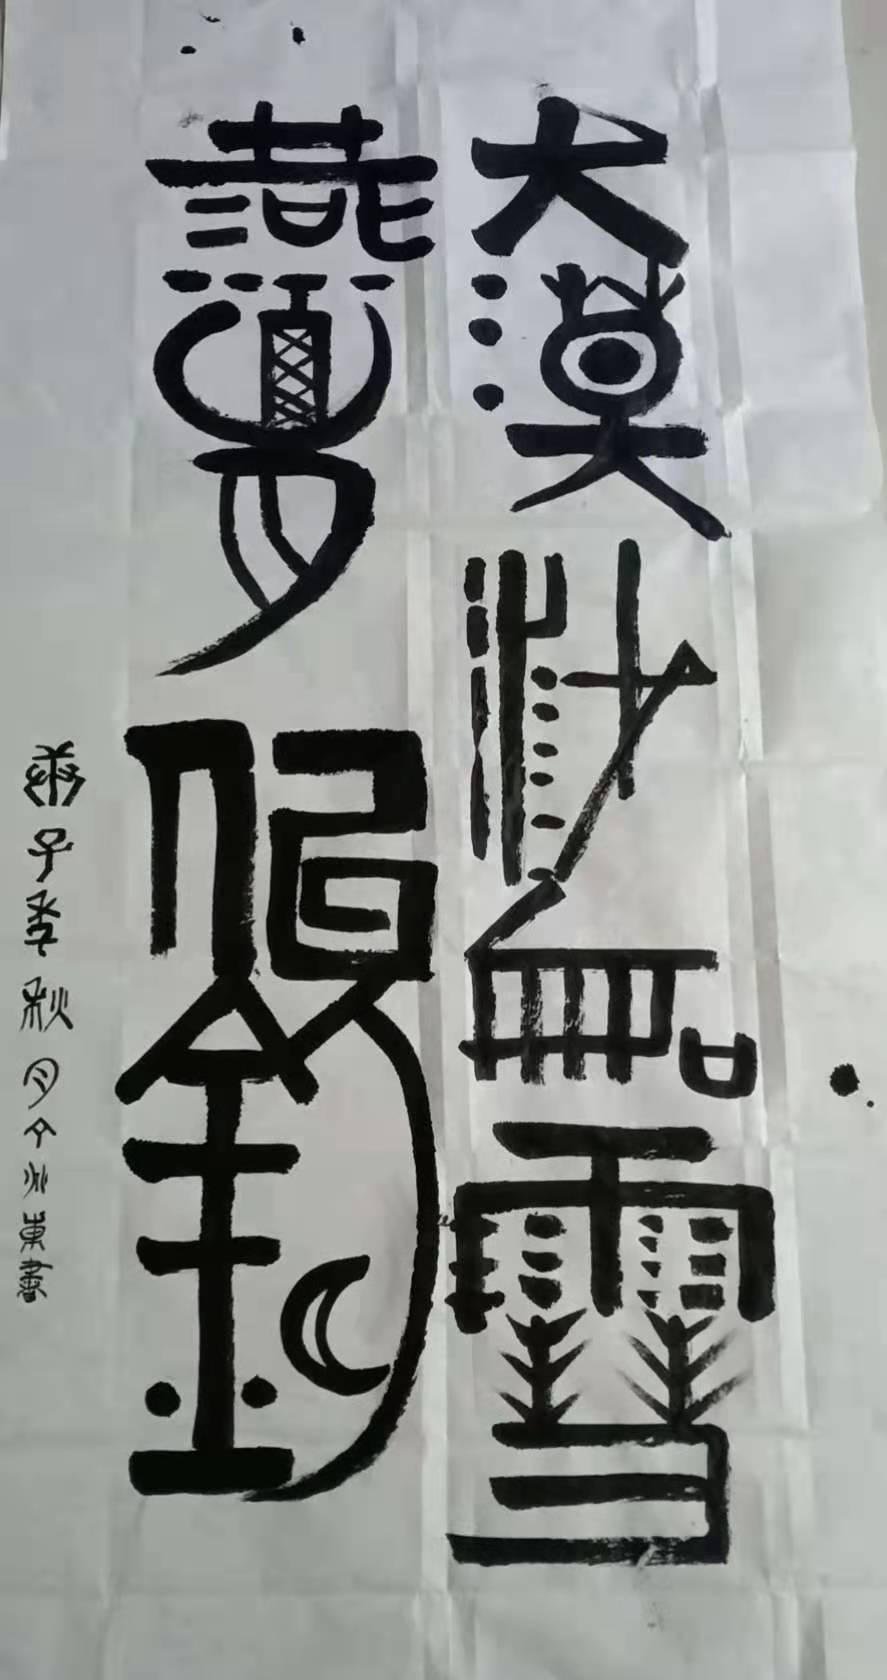 大漠沙如雪
燕山月似鉤
庚子季秋月東書